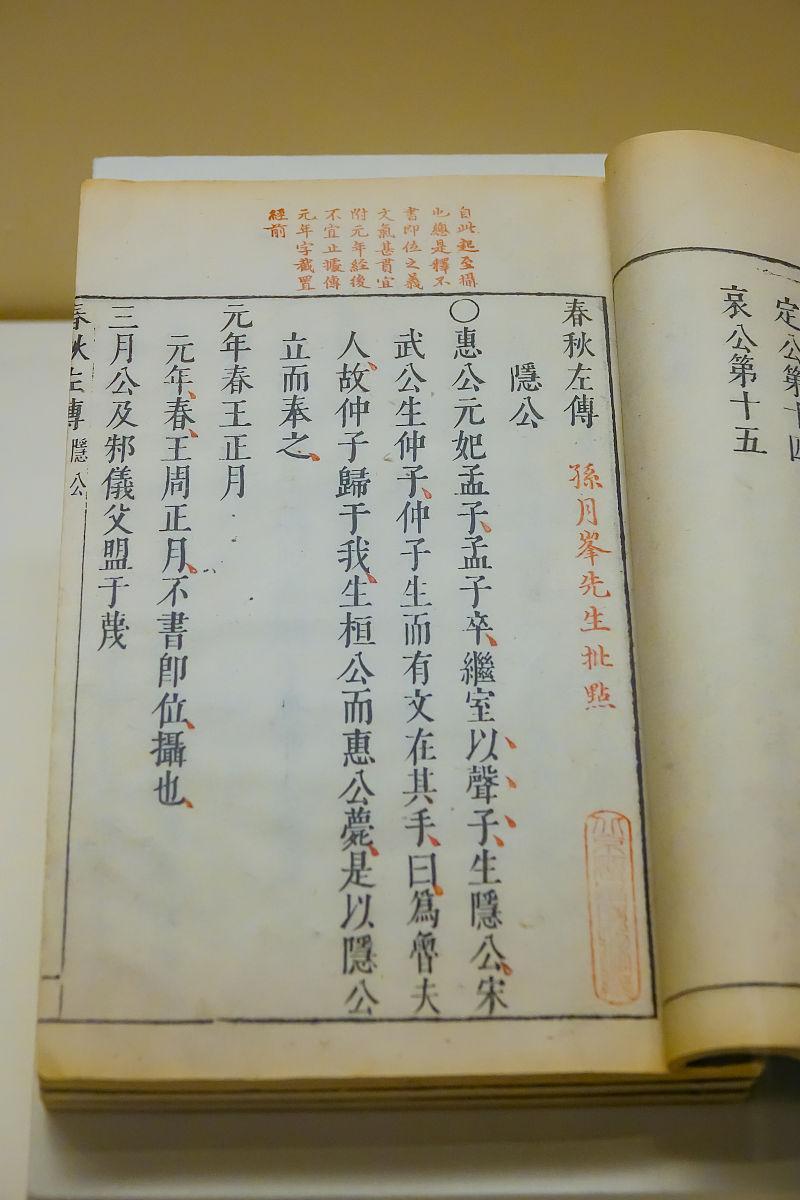 定公第十四
哀公第十五
自此起至攝
也總是釋不
書即位之義
文氣甚貫宜
附元年經後
不宜止據傳
元年字截置
經前
春秋左傳 孫月峯先生批點
隱公
〇惠公元妃孟子、孟子卒、繼室以聲子、生隱公、宋
武公生仲子、仲子生而有文在其手、曰、爲魯夫
人、故仲子歸于我、生桓公而惠公薨、是以隱公
立而奉之、
元年春王正月
元年、春、王周正月、不書即位、攝也、
三月公及邾儀父盟于蔑
春秋左傳 隱公 一